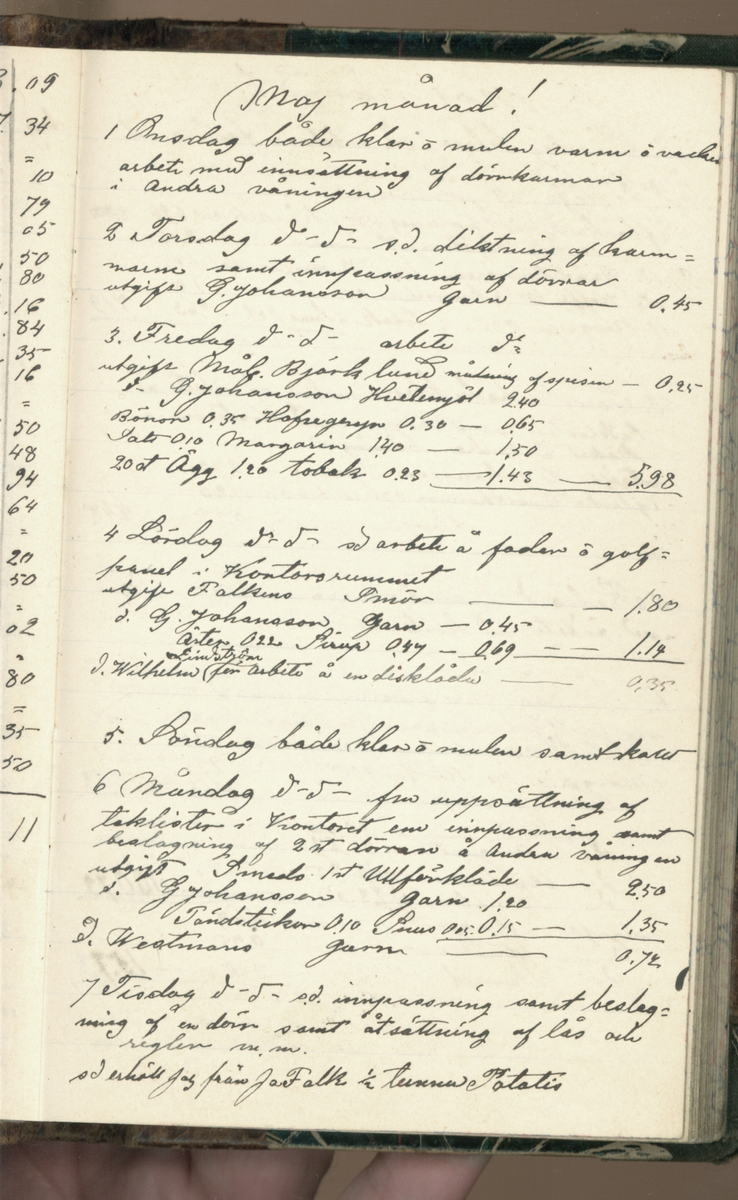 .09
34
=
10
79
05
50
80
.16
.84
35
16
=
50
48
94
64
=
20
50
=
02
=
80
=
35
50
11
Maj månad!
1 Onsdag både klar ö mulen varm ö vacker
arbete med innsättning af dörrkarmar
i Andra våningen
2 Torsdag d-d- s.d. diktning af karm=
marne samt innpassning af dörrar
utgift G. Johansson Garn — 0.45
3. Fredag d-d- arbete d=
utgift Mål. Björklund målning af spisen — 0.25
d- G. Johansson Hvetemjöl 2.40
Bönor 0.35 Hafregryn 0.30 — 0.65
Salt 0.10 Margarin 1.40 — 1.50
20 st Ägg 1.20 tobak 0.23 — 1.43 — 5.98
4 Lördag d-d- sd arbete å foder ö golf=
panel i Kontorsrummet
utgift Falkens Smör — — 1.80
d. G. Johansson Garn — 0.45
Ärter 0.22 Sirup 0.47 — 0.69 — — 1.14
Lindström
d. Wilhelm (för arbete å en disklåda — 0.35
5. Söndag både klar ö mulen samt
6 Måndag d-d- fm uppsättning af
taklister i Kontoret em innpassning samt
beslagning af 2 st dörrar å Andra våningen
utgift Smeds 1 st Ullförkläde — 2.50
d. G Johansson Garn 1.20
Tändstickor 0.10 Snus 0.05 0.15 — 1.35
d. Westmans Garn — 0.72
7 Tisdag d-d- s.d. innpassning samt beslag=
ning af en dörr samt åtsättning af lås och
reglar m.m.
sd erhöll Jag från Jo Falk ½ tunna Potatis